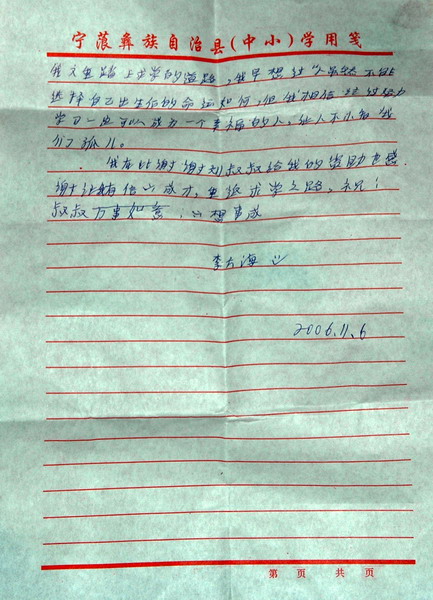 宁蒗彝族自治县(中小)学用笺
上求学的道路,我早想过"人虽然不能
选择自己出生后的命运如何,但我相信 经过努力
学习一定可以成为一个幸福的人,他人不小看我
们孤儿。
我在此谢谢刘叔叔给我的资助
谢让我有信心成才,重返求学之路,祝:
叔叔万事如意,心想事成
李大海
2006.11.6
第 页 共 页